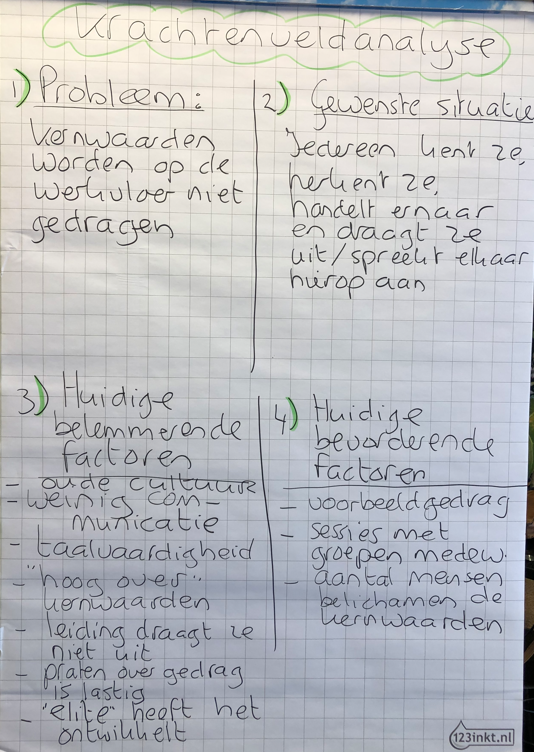 Krachtenveldanalyse
1) Probleem:
Kernwaarden
worden op de
werkvloer niet
gedragen
2) Gewenste situatie
Iedereen kent ze,
herkent ze,
handelt ernaar
en draagt ze
uit/spreekt elkaar
hierop aan
3) Huidige
belemmerende
factoren
- oude cultuur
- weinig com-
municatie
- taalvaardigheid
- "hoog over"
kernwaarden
- leiding draagt ze
niet uit
- praten over gedrag
is lastig
- "elite" heeft het
ontwikkelt
4) Huidige
bevorderende
factoren
- voorbeeldgedrag
- sessies met
groepen medew.
- aantal mensen
belichamen de
kernwaarden
123inkt.nl